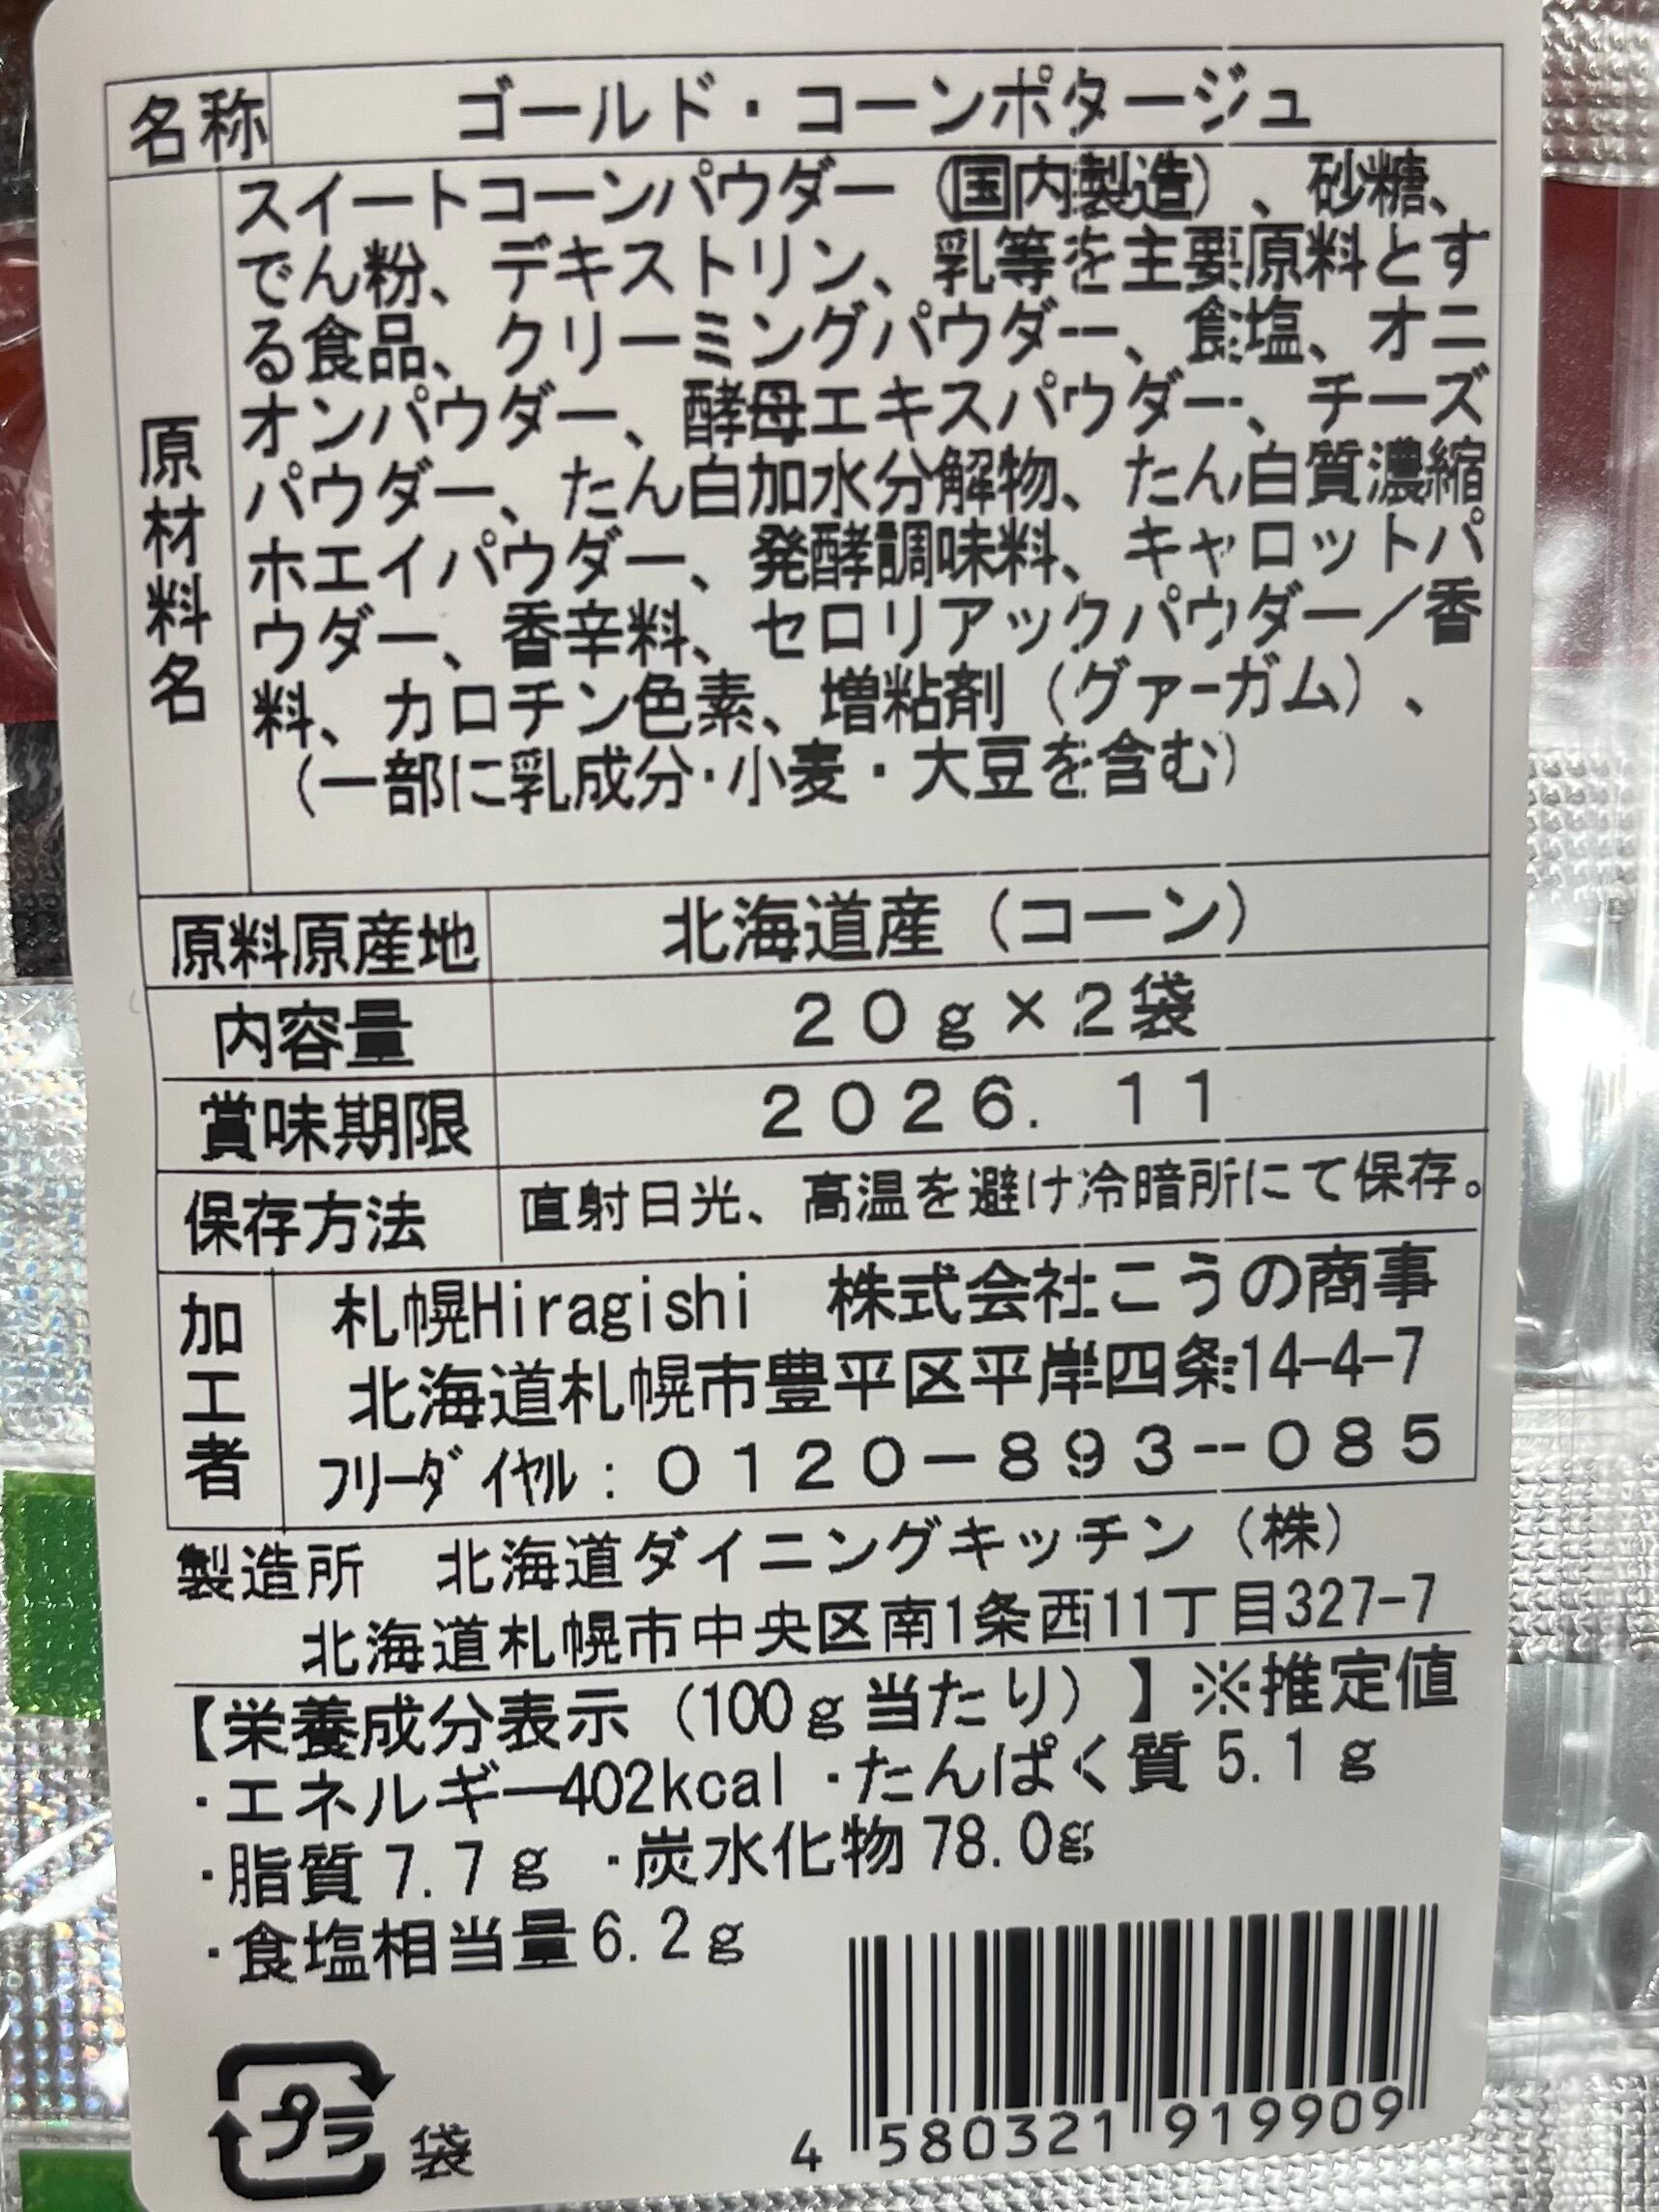 名称 ゴールド・コーンポタージュ
原材料名
スイートコーンパウダー（国内製造）、砂糖、
でん粉、デキストリン、乳等を主要原料とす
る食品、クリーミングパウダー、食塩、オニ
オンパウダー、酵母エキスパウダー、チーズ
パウダー、たん白加水分解物、たん白質濃縮
ホエイパウダー、発酵調味料、キャロットパ
ウダー、香辛料、セロリアックパウダー／香
料、カロチン色素、増粘剤（グァーガム）、
（一部に乳成分・小麦・大豆を含む）
原料原産地 北海道産（コーン）
内容量 20g×2袋
賞味期限 2026. 11
保存方法 直射日光、高温を避け冷暗所にて保存。
加工者
札幌Hiragishi 株式会社こうの商事
北海道札幌市豊平区平岸四条14-4-7
フリーダイヤル：0120-893-085
製造所 北海道ダイニングキッチン（株）
北海道札幌市中央区南1条西11丁目327-7
【栄養成分表示（100g当たり）】※推定値
・エネルギー402kcal ・たんぱく質5.1g
・脂質7.7g ・炭水化物78.0g
・食塩相当量6.2g
プラ 袋
4 580321 919909